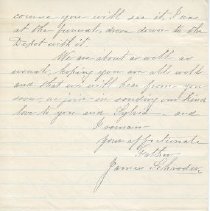 course you will see it, I was
at the funeral, drove down to the
Depot with it.
We are about as well as
usual, hoping you are all well
and that we will hear from you
soon. all join in sending our kind
love to you and Sylvia. and
I remain
your affectionate
Father
James Schrooder